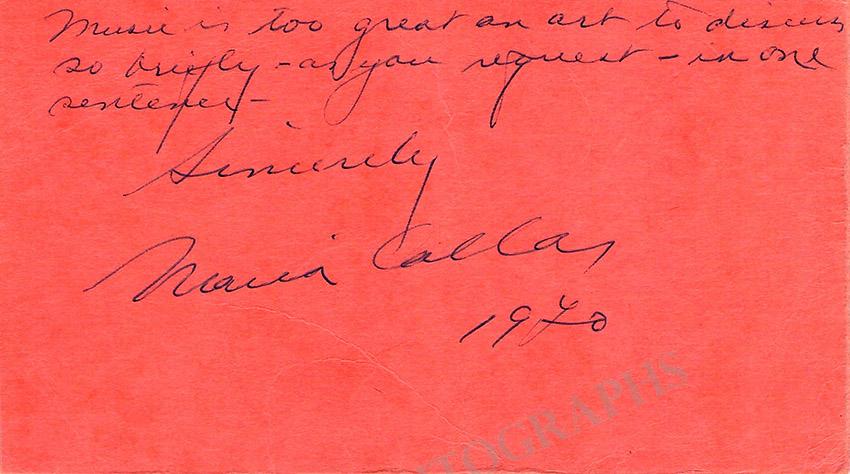 Music is too great an art to discuss
so briefly - as you request - in one
sentence -
Sincerely
Maria Callas
1970
TOGRAPHS